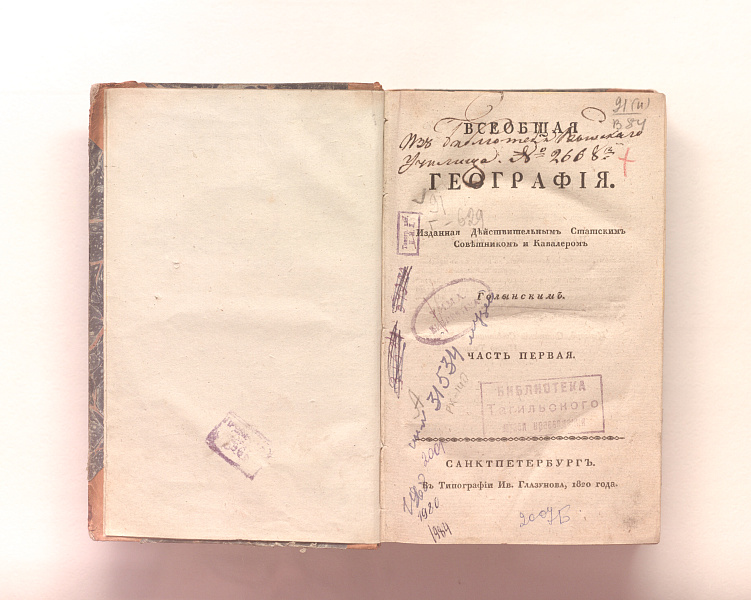 91(и)
В 84
ВСЕОБЩАЯ
Изъ библіотеки
Училища. № 2668
ГЕОГРАФІЯ.
629
Изданная Дѣйствительнымъ Статскимъ
Совѣтникомъ и Кавалеромъ
Голынскимъ.
31534
ЧАСТЬ ПЕРВАЯ.
БИБЛИОТЕКА
Тагильского
САНКТПЕТЕРБУРГЪ.
Въ Типографіи Ив. Глазунова, 1820 года.
1920
1984
2007Б